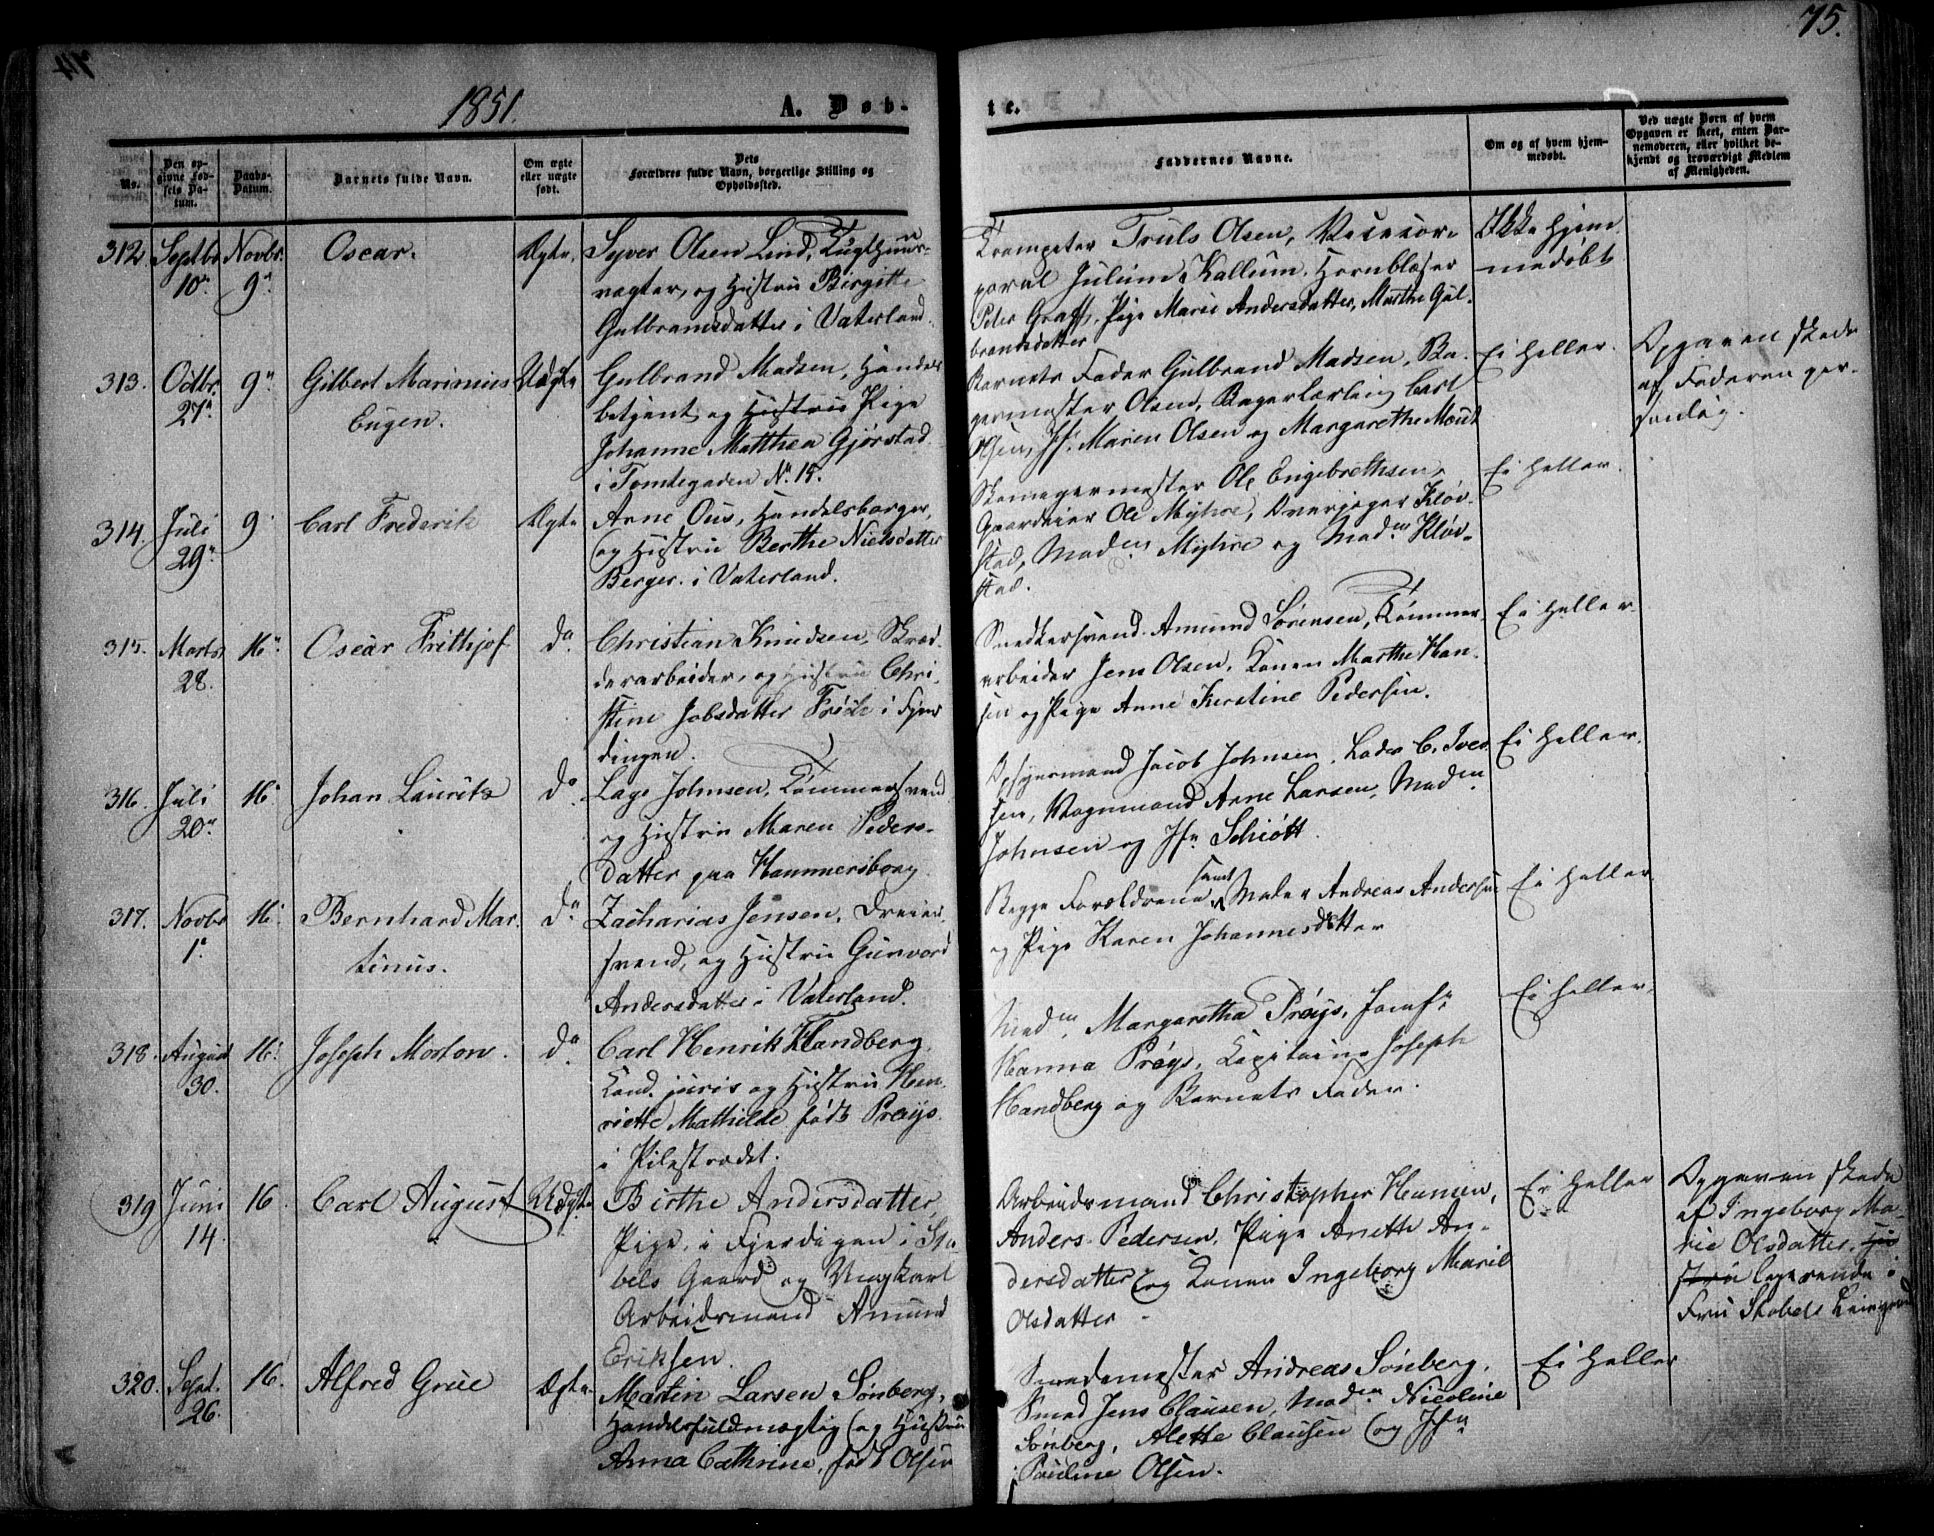 75.
1851.
A. Døb-
te.
No.
Den op-
givne Fød-
sels Da-
tum.
Daabs-
Datum.
Barnets fulde Navn.
Om ægte
eller uægte
født.
Dets
Forældres fulde Navn, borgerlige Stilling og
Opholdssted.
Faddernes Navne.
Om og af hvem hjem-
medøbt.
Ved uægte Børn af hvem
Opgaven er skeet, enten Bar-
nemoderen, eller hvilket be-
kjendt og troværdigt Medlem
af Menigheden.
312. Septbr. 10. Novbr. 9.
Oscar.
Ægte.
Syver Olsen Lind, Tugthuus-
vagter, og Hustru Birgitte
Gulbransdatter i Vaterland.
Trompeter Truls Olsen, Vicecor-
poral Julius Kallum, Hornblæser
Peter Graff, Pige Marie Andersdatter, Marthe Gul-
brandsdatter
Ikke hjem-
medøbt
313. Octbr. 27. 9.
Gilbert Marinius
Eugen.
Uægte
Gulbrand Madsen, Handels
betjent og Hustru Pige
Johanne Matthea Gjørstad
i Tomtegaden No. 15.
Barnets Fader Gulbrand Madsen, Ba-
germester Olsen, Bagerlærling Carl
Olsen, Jf. Maren Olsen og Margarethe
Ei heller.
Opgaven skede
af Faderen per-
sonlig.
314. Juli 29. 9
Carl Frederik
Ægte
Arne Ous, Handelsborger,
og Hustru Berthe Nielsdatter
Berger i Vaterland.
Skomagermester Ole Engebrethsen,
Gaardeier Ole Myhre, Overjæger Kløv-
stad, Madm. Myhre og Madm. Kløv-
stad.
Ei heller.
315. Marts 28. 16.
Oscar Frithjof
do.
Christian Knudsen, Skræd-
derarbeider, og Hustru Chri-
stine Jobsdatter i Fjer-
dingen.
Snedkersvend Amund Sørensen, Tømmer-
arbeider Jens Olsen, Konen Marthe Han-
sen og Pige Anne Kerstine Pedersen.
Ei heller.
316. Juli 20. 16
Johan Lauritz
do.
Lage Johnsen, Tømmersvend
og Hustru Maren Peders-
datter paa Hammersborg
Opsynsmand Jacob Johnsen, C. Iver-
sen, Vognmand Arne Larsen, Madm.
Johnsen og Jfr. Schiøtt.
Ei heller.
317. Novbr 1. 16.
Bernhard Mar-
tinus.
do.
Zacharias Jensen, Dreier-
svend, og Hustru Gunvord
Andersdatter i Vaterland.
Begge Forældrene samt Maler Andreas Andersen
og Pige Karen Johannesdatter
Ei heller.
318. August 30. 16.
Joseph Morton.
do.
Carl Henrik Handberg,
Cand. juris og Hustru Hen-
riette Mathilde født Prøys
i Pilestrædet.
Madm. Margaretha Prøys, Jomfr.
Hanna Prøys, Kapitaine Joseph
Handberg og Barnets Fader.
Ei heller.
319 Juni 14. 16.
Carl August
Uægte
Birthe Andersdatter,
Pige, i Fjerdigen i Sta-
bels Gaard og Ungkarl
Arbeidsmand Amund
Eriksen.
Arbeidsmand Christopher Hansen,
Anders Pedersen, Pige Anette An-
dersdatter og Konen Ingeborg Marie
Olsdatter.
Ei heller
Opgaven skede
af Ingeborg Ma-
rie Olsdatter, Hu-
stru logerende i
Fru Stabels
320. Sept. 26. 16.
Alfred Grüe
Ægte
Martin Larsen Sønberg,
Handelsfuldmægtig og Hustru
Anna Cathrine, født Olsen
Smedemester Andreas Sønberg,
Smed Jens Clausen, Madm. Nicoline
Sønberg, Alette Clausen og Jfr.
Pauline Olsen.
Ei heller